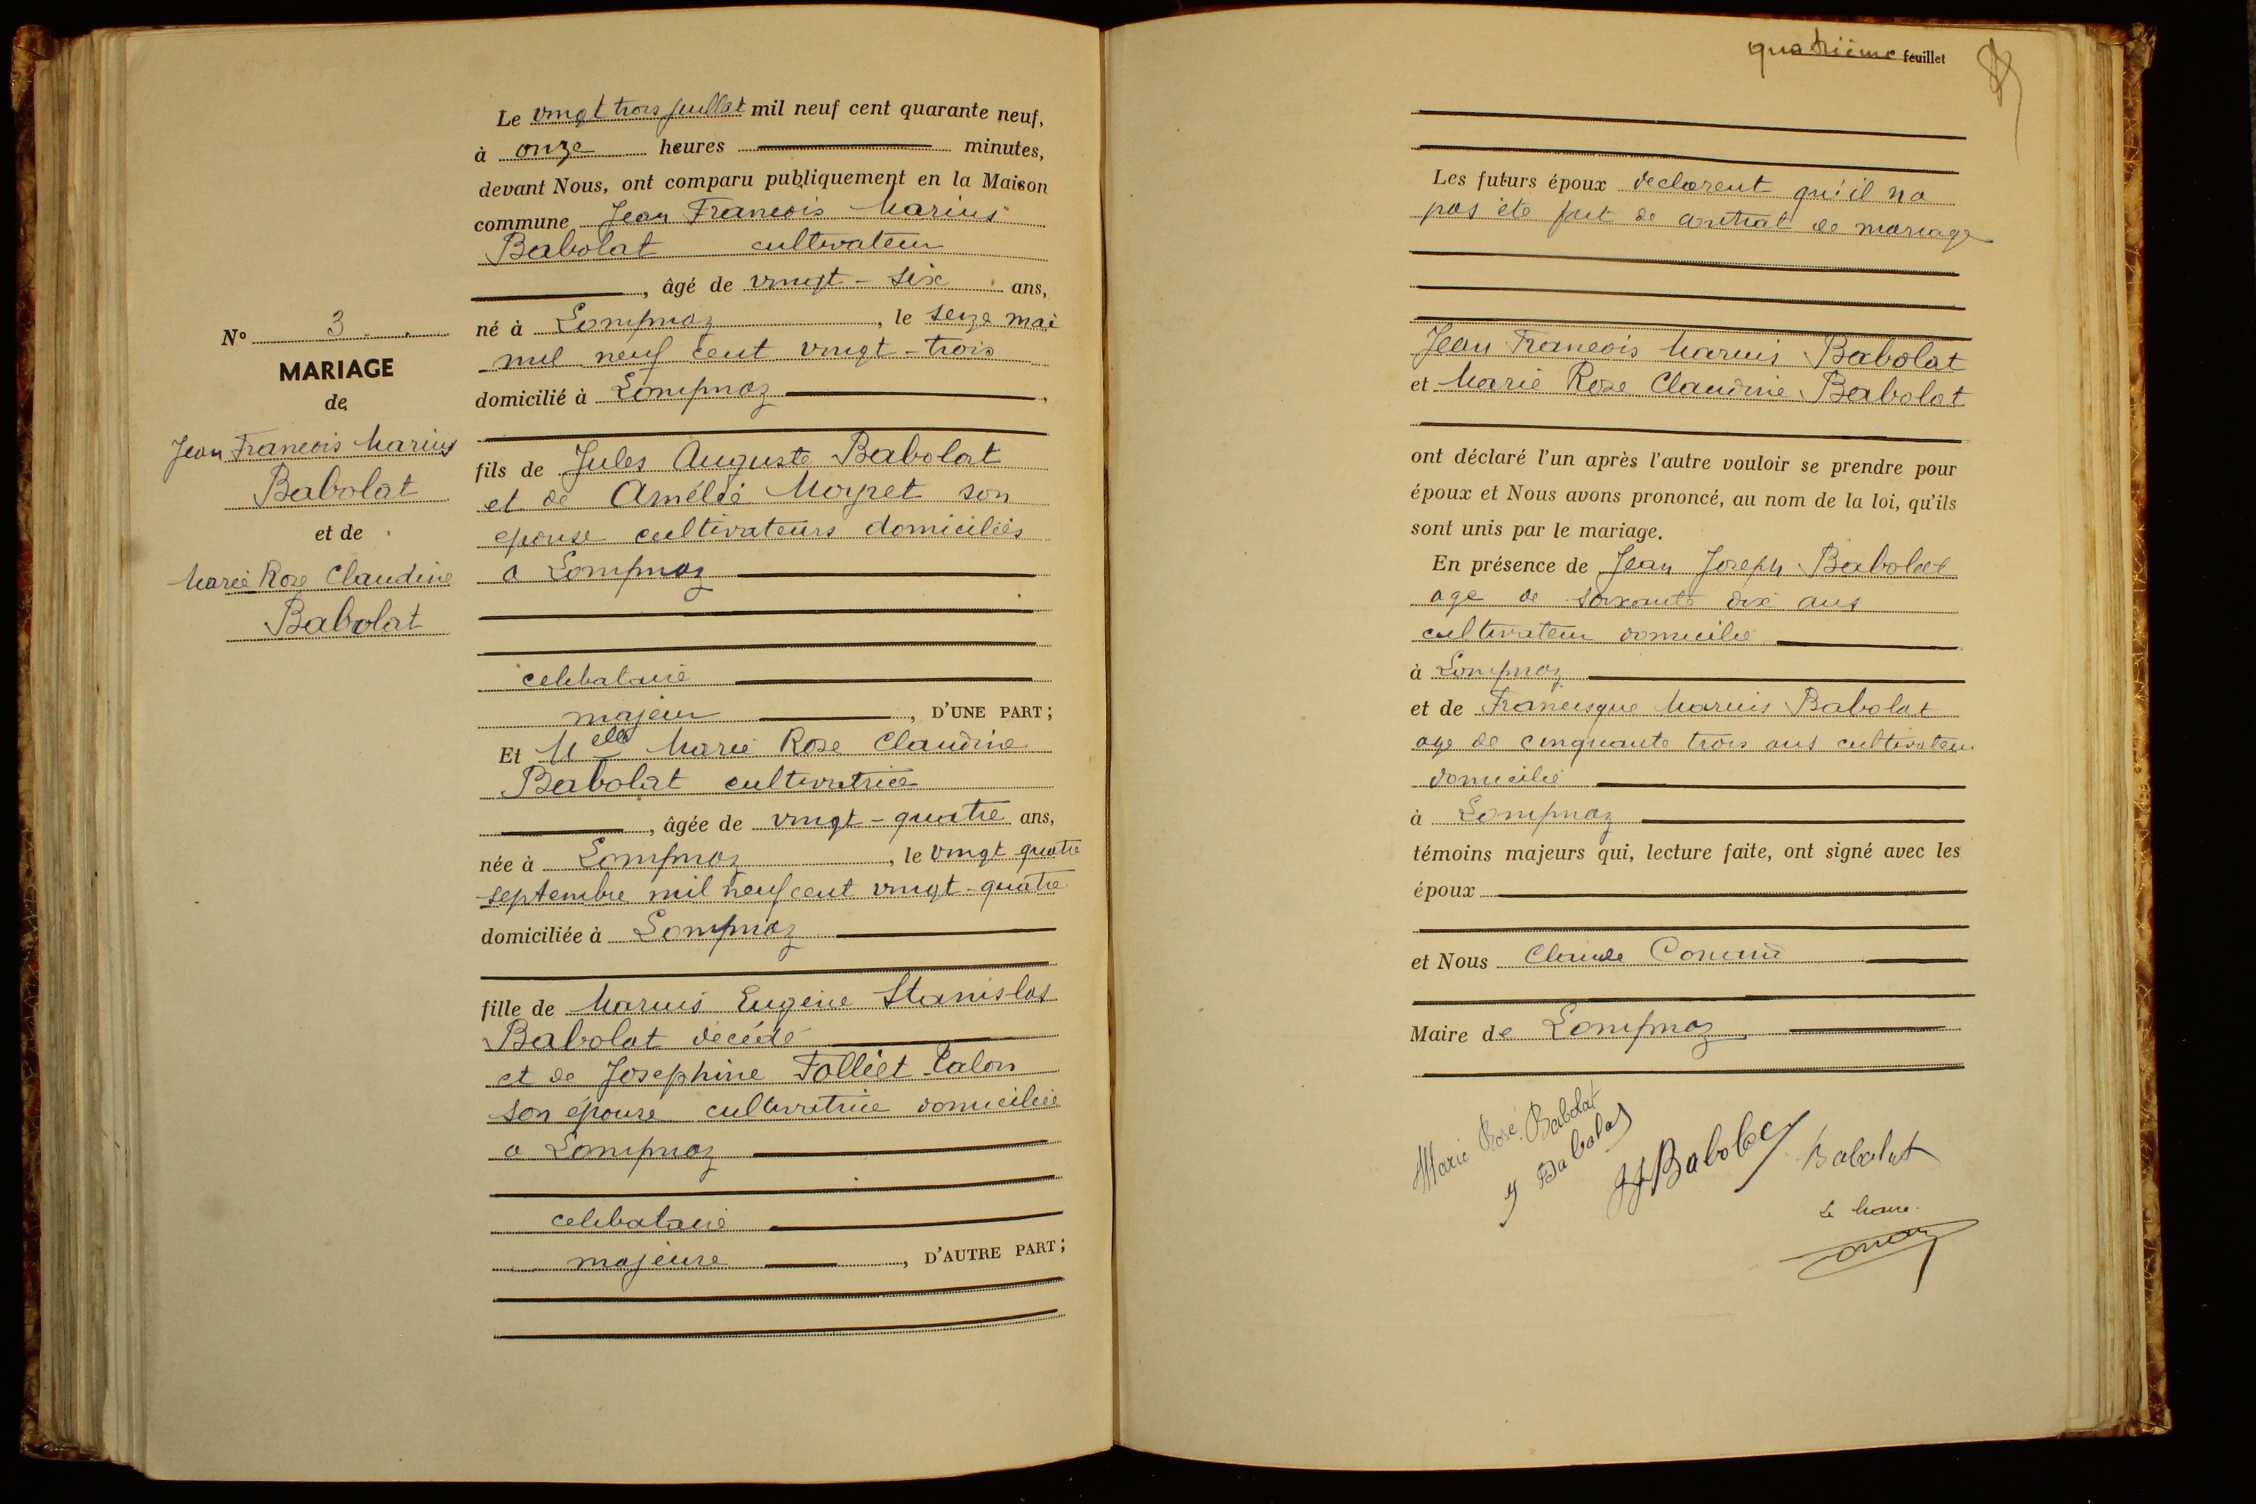 Le vingt trois juillet mil neuf cent quarante neuf,
à onze heures minutes,
devant Nous, ont comparu publiquement en la Maison
commune Jean Francois Marius
Babolat cultivateur
, âgé de vingt-six ans,
né à Lompnaz, le seize mai
mil neuf cent vingt-trois
domicilié à Lompnaz
fils de Jules Auguste Babolat
et de Amélie Moyret son
epouse cultivateurs domiciliés
a Lompnaz
celibataire
majeur, D'UNE PART ;
Et Melle Marie Rose Claudine
Babolat cultivatrice
, âgée de vingt-quatre ans,
née à Lompnaz, le vingt quatre
septembre mil neuf cent vingt-quatre
domiciliée à Lompnaz
fille de Marius Eugène Stanislas
Babolat décédé
et de Josephine Folliet Talon
son épouse cultivatrice domiciliée
a Lompnaz
celibataire
majeure, D'AUTRE PART ;
N° 3
MARIAGE
de
Jean Francois Marius
Babolat
et de
Marie Rose Claudine
Babolat
quatrième feuillet
Les futurs époux declarent qu'il na
pas été fait de contrat de mariage
Jean Francois Marius Babolat
et Marie Rose Claudine Babolat
ont déclaré l'un après l'autre vouloir se prendre pour
époux et Nous avons prononcé, au nom de la loi, qu'ils
sont unis par le mariage.
En présence de Jean Joseph Babolat
age de soixante dix ans
cultivateur domicilié
à Lompnaz
et de Francisque Marius Babolat
age de cinquante trois ans cultivateur
domicilié
à Lompnaz
témoins majeurs qui, lecture faite, ont signé avec les
époux
et Nous Claude Conand
Maire de Lompnaz
Marie Rose Babolat
J Babolat
JJ Babolat
Babolat
Le Maire